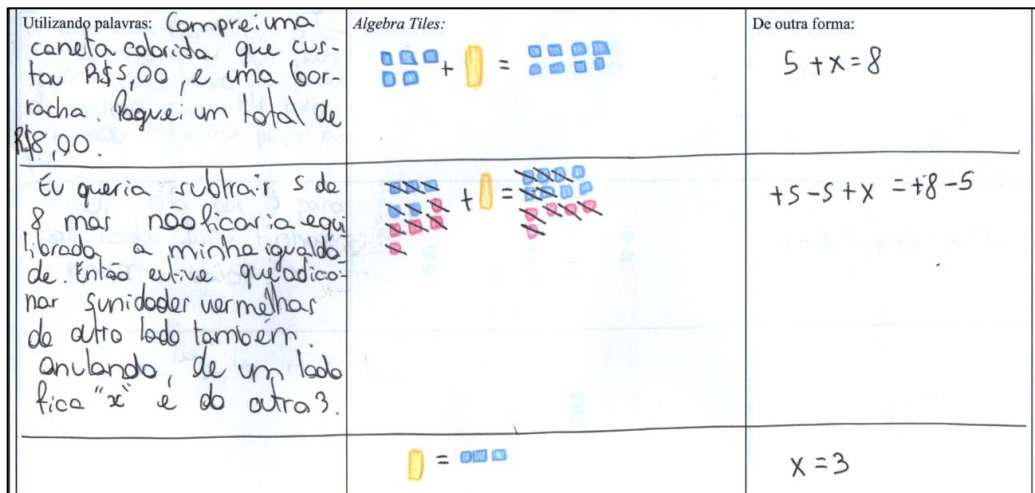 Utilizando palavras: Comprei uma
caneta colorida que cus-
tou R$5,00, e uma bor-
racha. Paguei um total de
R$8,00.
Algebra Tiles:
+ =
De outra forma:
5 + x = 8
Eu queria subtrair 5 de
8 mas não ficaria equi
librada a minha igualda
de. Então eu tive que adicio-
nar 5 unidades vermelhas
do outro lado também.
anulando, de um lado
fica "x" e do outro 3.
+ =
+5-5+x = +8-5
=
x = 3